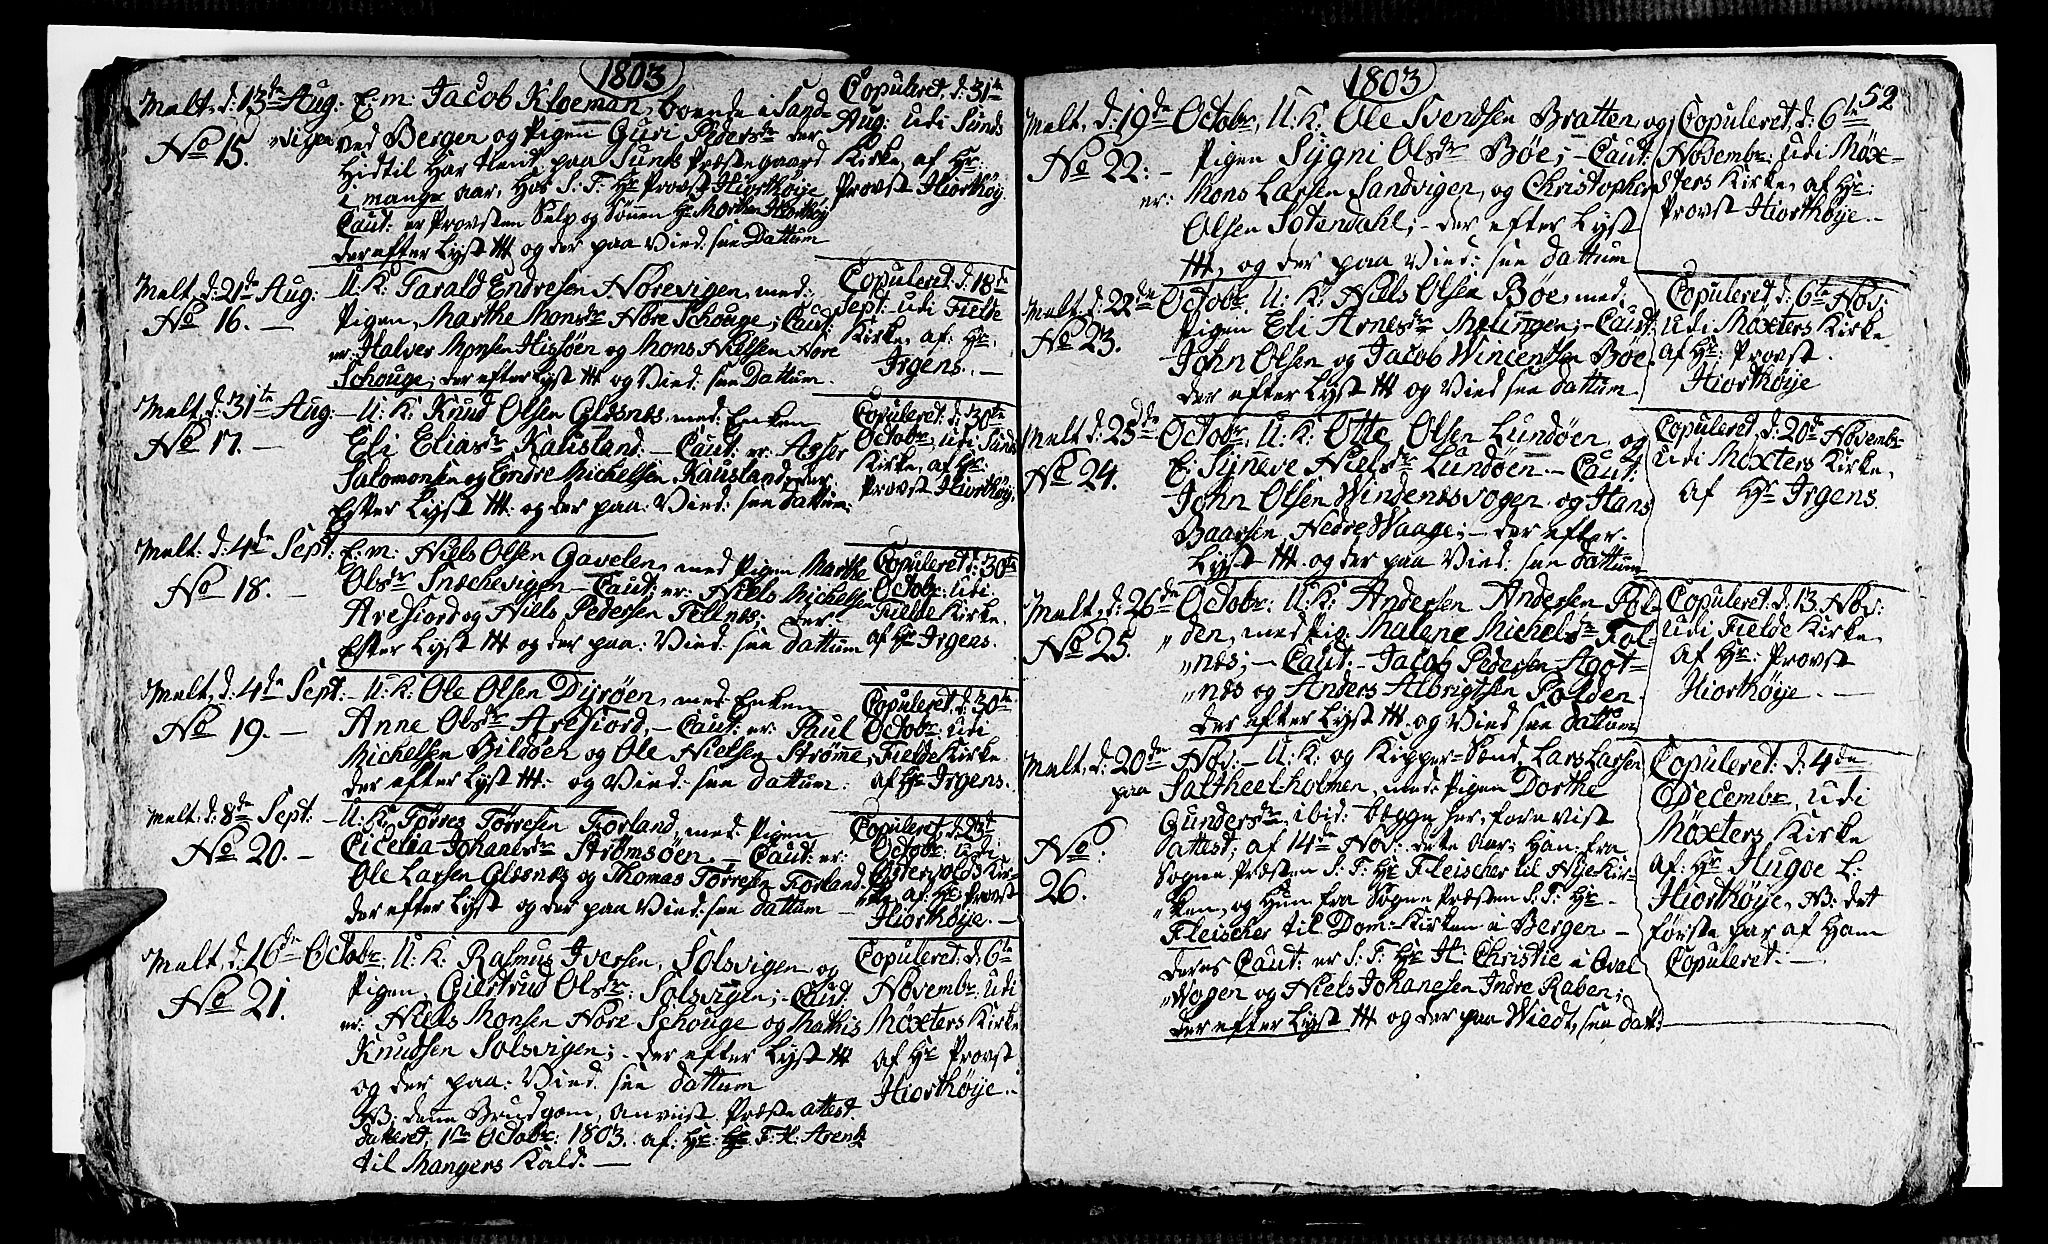 1803
Malt, d: 13de Aug: E: m: Jacob Kloeman, boende i Sand-
No 15. ved Bergen og Pigen Guri Peders dr der
hidtil har tient paa Sunds Præstegaard
i mange aar, hos S. T. Hr Provst Hiorthøye
Caut: er Provsten Selv og Sønnen Hr Morten Hiorthøy
der efter Lyst ttt og der paa Vied: see Dattum
Copuleret, d: 31te
Aug: udi Sunds
Kirke, af Hr:
Provst Hiorthøy.
Malt, d: 21de Aug: U: K: Tarald Endresen Nørevigen, med:
No 16. — Pigen, Marthe Mons dr Nore Schouge; Caut:
er: Halver Monsen Hissøen og Mons Nielsen Nore
Schouge; der efter Lyst ttt og Vied: see Dattum.
Copuleret, d: 18de
Sept: udi Fielde
Kirke, af: Hr:
Irgens. —
Malt, d: 31te Aug: — U: K: Knud Olsen Glesnes, med: Enken
No 17. — Eli Elias dr Kausland. — Caut: er: Asser
Salomonsen og Endre Michelsen Kausland, der:
Efter Lyst ttt: og der paa: Vied: see Dattum:
Copuleret, d: 30te
Octobr, udi Sunds
Kirke, af Hr:
Provst Hiorthøy.
Malt: d: 4de Sept: E: m: Niels Olsen Gavelen, med Pigen Marthe
No 18. — Ols dr Snechevigen — Caut: er: Niels Michelsen
Arefiord og Niels Pedersen Tellnes; der
Efter Lyst ttt og der paa: Vied: see Dattum
Copuleret d: 30te
Octobr: udi
Fielde Kirke,
af Hr Irgens.
Malt, d: 4de Sept: — U: K: Ole Olsen Dyrøen, med Enken
No 19. — Anne Ols dr Arefiord, — Caut: er: Paul
Michelsen Bildøen og Ole Nielsen Strømme,
der efter Lyst ttt: og Vied: see Dattum:
Copuleret, d: 30te
Octobr: udi
Fielde Kirke
af Hr Irgens.
Malt, d: 8de Sept: — U: K: Torres Tørresen Forland, med: Pigen
No 20. — Cicelia Johanes dr Strømsøen — Caut: er:
Ole Larsen Glesnes og Thomas Torresen Forland.
der efter Lyst og der paa Vied: see Dattum
Copuleret, d: 23d
Octobr: udi
Østervolds Kir-
ke af Hr Provst
Hiorthøye. —
Malt, d: 16de Octobr, U: K: Rasmus Iversen, Solsvigen og
No 21. Pigen, Giertrud Ols dr: Solsvigen; — Caut:
er: Niels Monsen Nore Schouge og Mathis
Knudsen Solsvigen; — der efter Lyst ttt
og der paa: Vied: see Dattum
NB: denne Brudgom, anviist Præste attest
datteret, 1te Octobr: 1803. af: Hr: Hr T: H: Arentz
til Mangers Kald. —
Copuleret: d: 6te
Novembr: udi
Møxters Kirke
af Hr Provst
Hiorthøye.
1803
52
Malt, d: 19de Octobr, U: K: Ole Svendsen Bratten, og
No 22: — Pigen Sygni Ols dr Bøe; — Caut:
er: Mons Larsen Sandvigen, og Christopher
Olsen Sotendahl; — der efter Lyst
ttt, og der paa Vied: see Dattum
Copuleret, d: 6te
Novembr: udi Møx-
sters Kirke, af Hr:
Provst Hiorthøye. —
Malt, d: 22de Octobr. U: K: Niels Olsen Bøe, med.
No 23. Pigen Eli Arnes dr Mølingen; — Caut:
John Olsen og Jacob Wincentsen Bøe
der efter Lyst ttt og Vied see Dattum.
Copuleret d: 6te Nov:
Udi Møxters Kirke
af Hr: Provst.
Hiorthøye
Malt d: 25de Octobr, U: K: Otte Olsen Lundøen, og
No 24. E: Syneve Niels dr Lundøen. — Caut:
John Olsen Windenesvogen og Hans
Baarsen, Nedre Waage; — der efter
Lyst ttt. og der paa Vied: see Dattum
Copuleret, d: 20de Novembr
udi Moxters Kirke,
af Hr Irgens.
Malt, d: 26de Octobr: U: K: Andersen Andersen Pol-
No 25. den, med Pig: Malene Michels dr Fol-
nes; — Caut: — Jacob Pedersen Agot-
nes og Anders Albrigtsen Polden.
der efter Lyst ttt. og Vied see Dattum
Copuleret: d: 13. Nov:
udi Fielde Kirke,
af Hr: Provst
Hiorthøye. —
Malt, d: 20de Nov: — U: K: og Kipper-Svend, Lars Larsen
paa Saltheel-holmen, med: Pigen Dorthe
Gunders dr, ibid: begge her forevist
No: Attest; af 14de Nov: dette Aar; Han: fra
26. Sogne Præsten S: T: Hr Fleischer til Nye Kir-
ken, og Hun fra Sogne Præsten S: T: Hr —
Fleischer til Dom-Kirken i Bergen —
deres Caut: er S: T: Hr H: Christie i Qval
Wogen og Niels Johanesen Indre Raben;
der efter Lyst ttt og der paa Wiedt, see Datt:
Copuleret: d: 4de
Decembr, udi
Møxters Kirke
af: Hr Hugoe L:
Hiorthøye, NB: det
første par af Ham
Copuleret: —